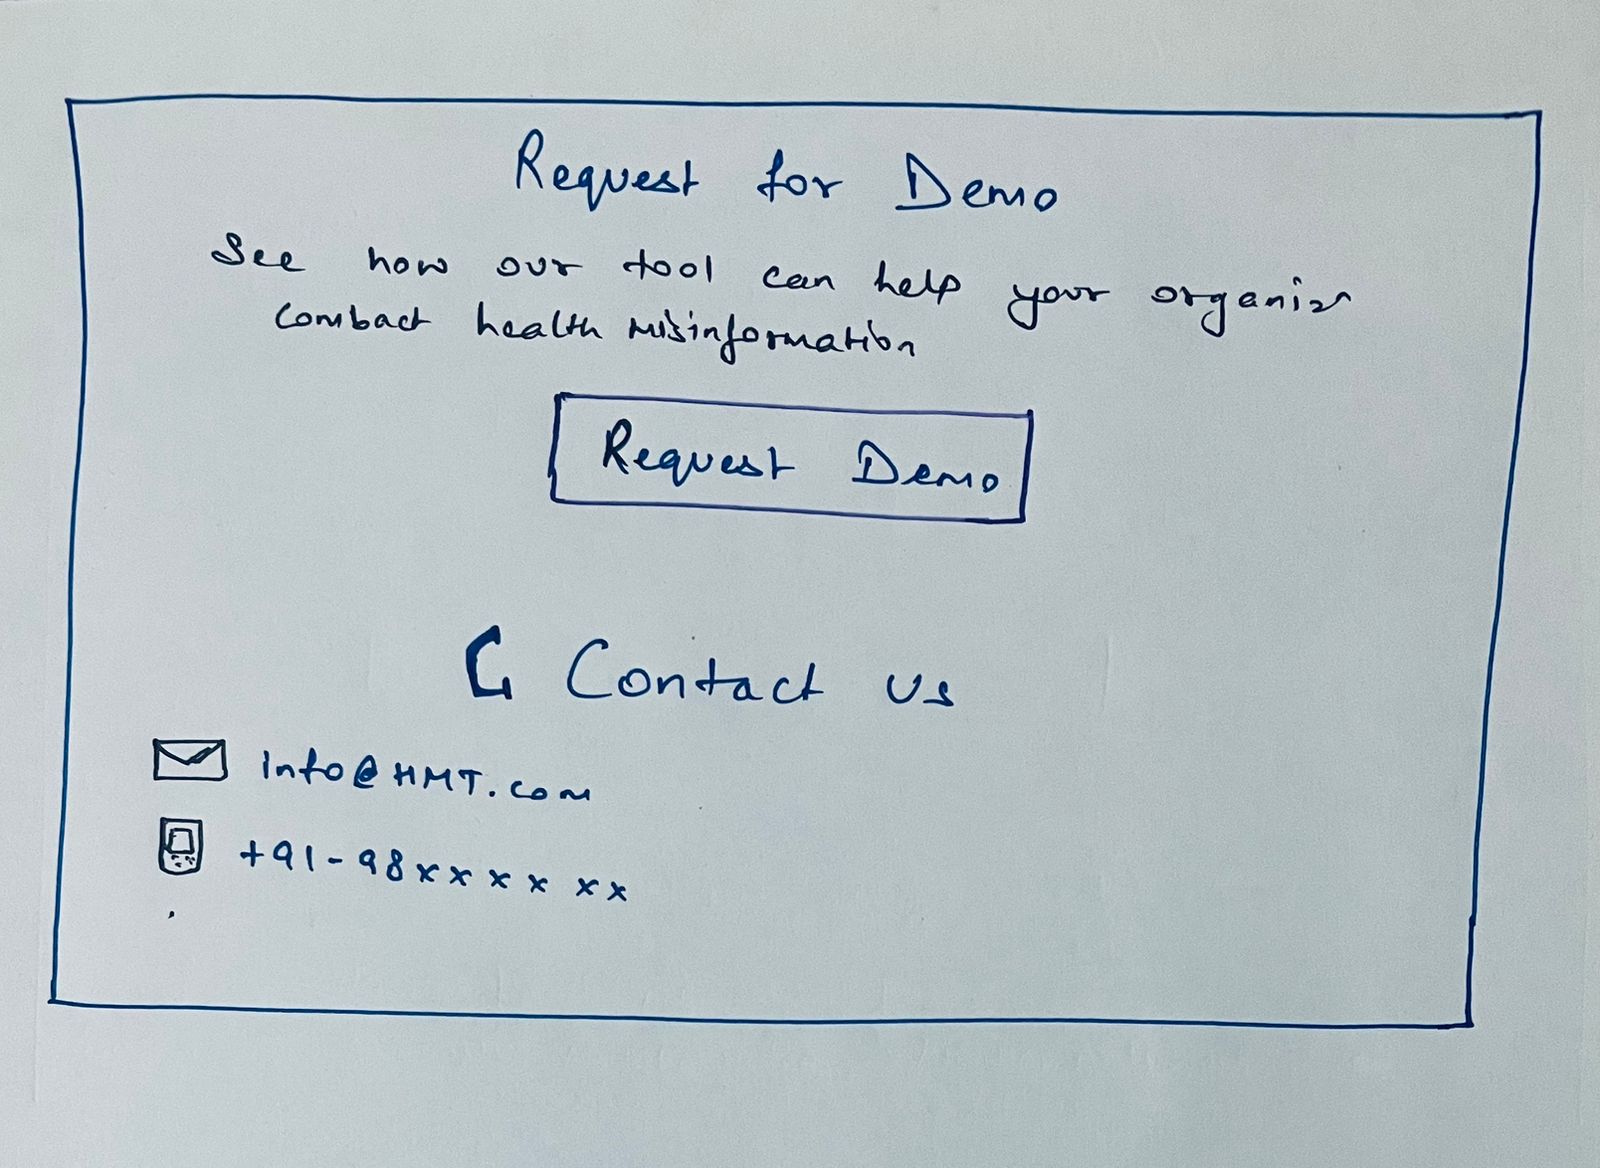 Request for Demo
See how our tool can help your organiz
combact health misinformation
Request Demo
Contact us
info@HMT.com
+91-98xxxx xx